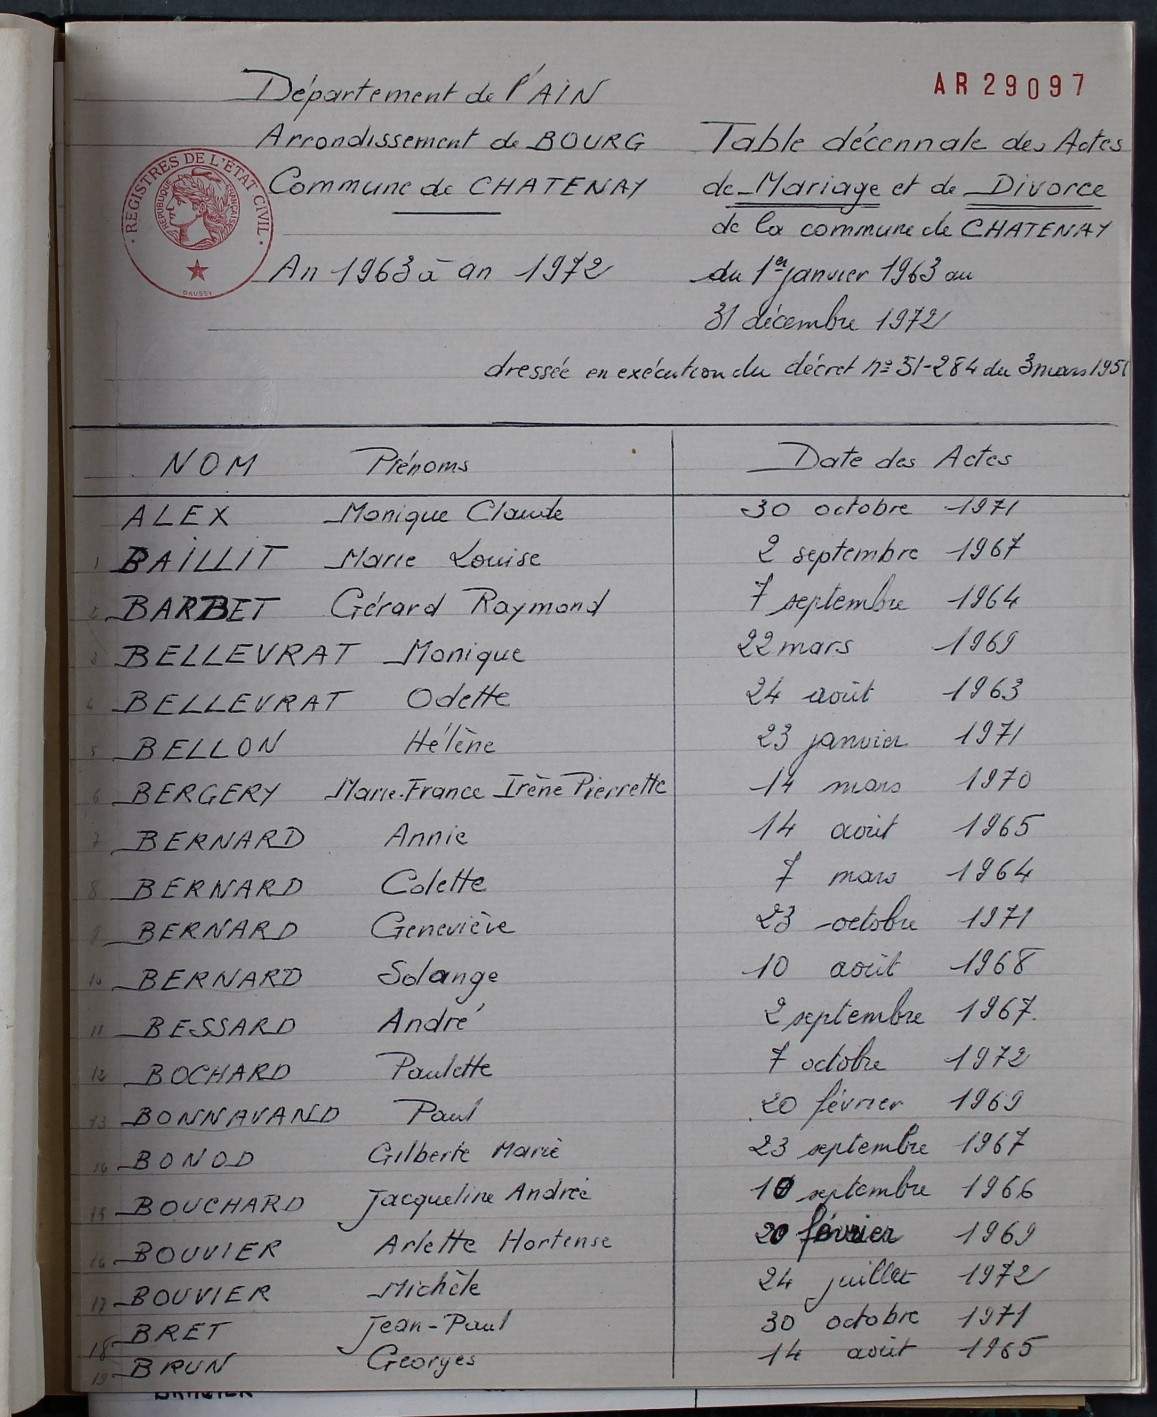 AR29097
Département de l'AIN
Arrondissement de BOURG
Commune de CHATENAY
An 1963 à an 1972
REGISTRES DE L'ETAT CIVIL
REPUBLIQUE FRANÇAISE
Table décennale des Actes
de Mariage et de Divorce
de la commune de CHATENAY
du 1er janvier 1963 au
31 décembre 1972
dressée en exécution du décret n° 51-284 du 3 mars 1951
NOM Prénoms Date des Actes
ALEX Monique Claude 30 octobre 1971
1 BAILLIT Marie Louise 2 septembre 1967
2 BARBET Gérard Raymond 7 septembre 1964
3 BELLEVRAT Monique 22 mars 1969
4 BELLEVRAT Odette 24 août 1963
5 BELLON Hélène 23 janvier 1971
6 BERGERY Marie-France Irène Pierrette 14 mars 1970
7 BERNARD Annie 14 août 1965
8 BERNARD Colette 7 mars 1964
9 BERNARD Geneviève 23 octobre 1971
10 BERNARD Solange 10 août 1968
11 BESSARD André 2 septembre 1967.
12 BOCHARD Paulette 7 octobre 1972
13 BONNAVAND Paul 20 février 1969
14 BONOD Gilberte Marie 23 septembre 1967
15 BOUCHARD Jacqueline Andrée 10 septembre 1966
16 BOUVIER Arlette Hortense 20 février 1969
17 BOUVIER Michèle 24 juillet 1972
18 BRET Jean-Paul 30 octobre 1971
19 BRUN Georges 14 août 1965